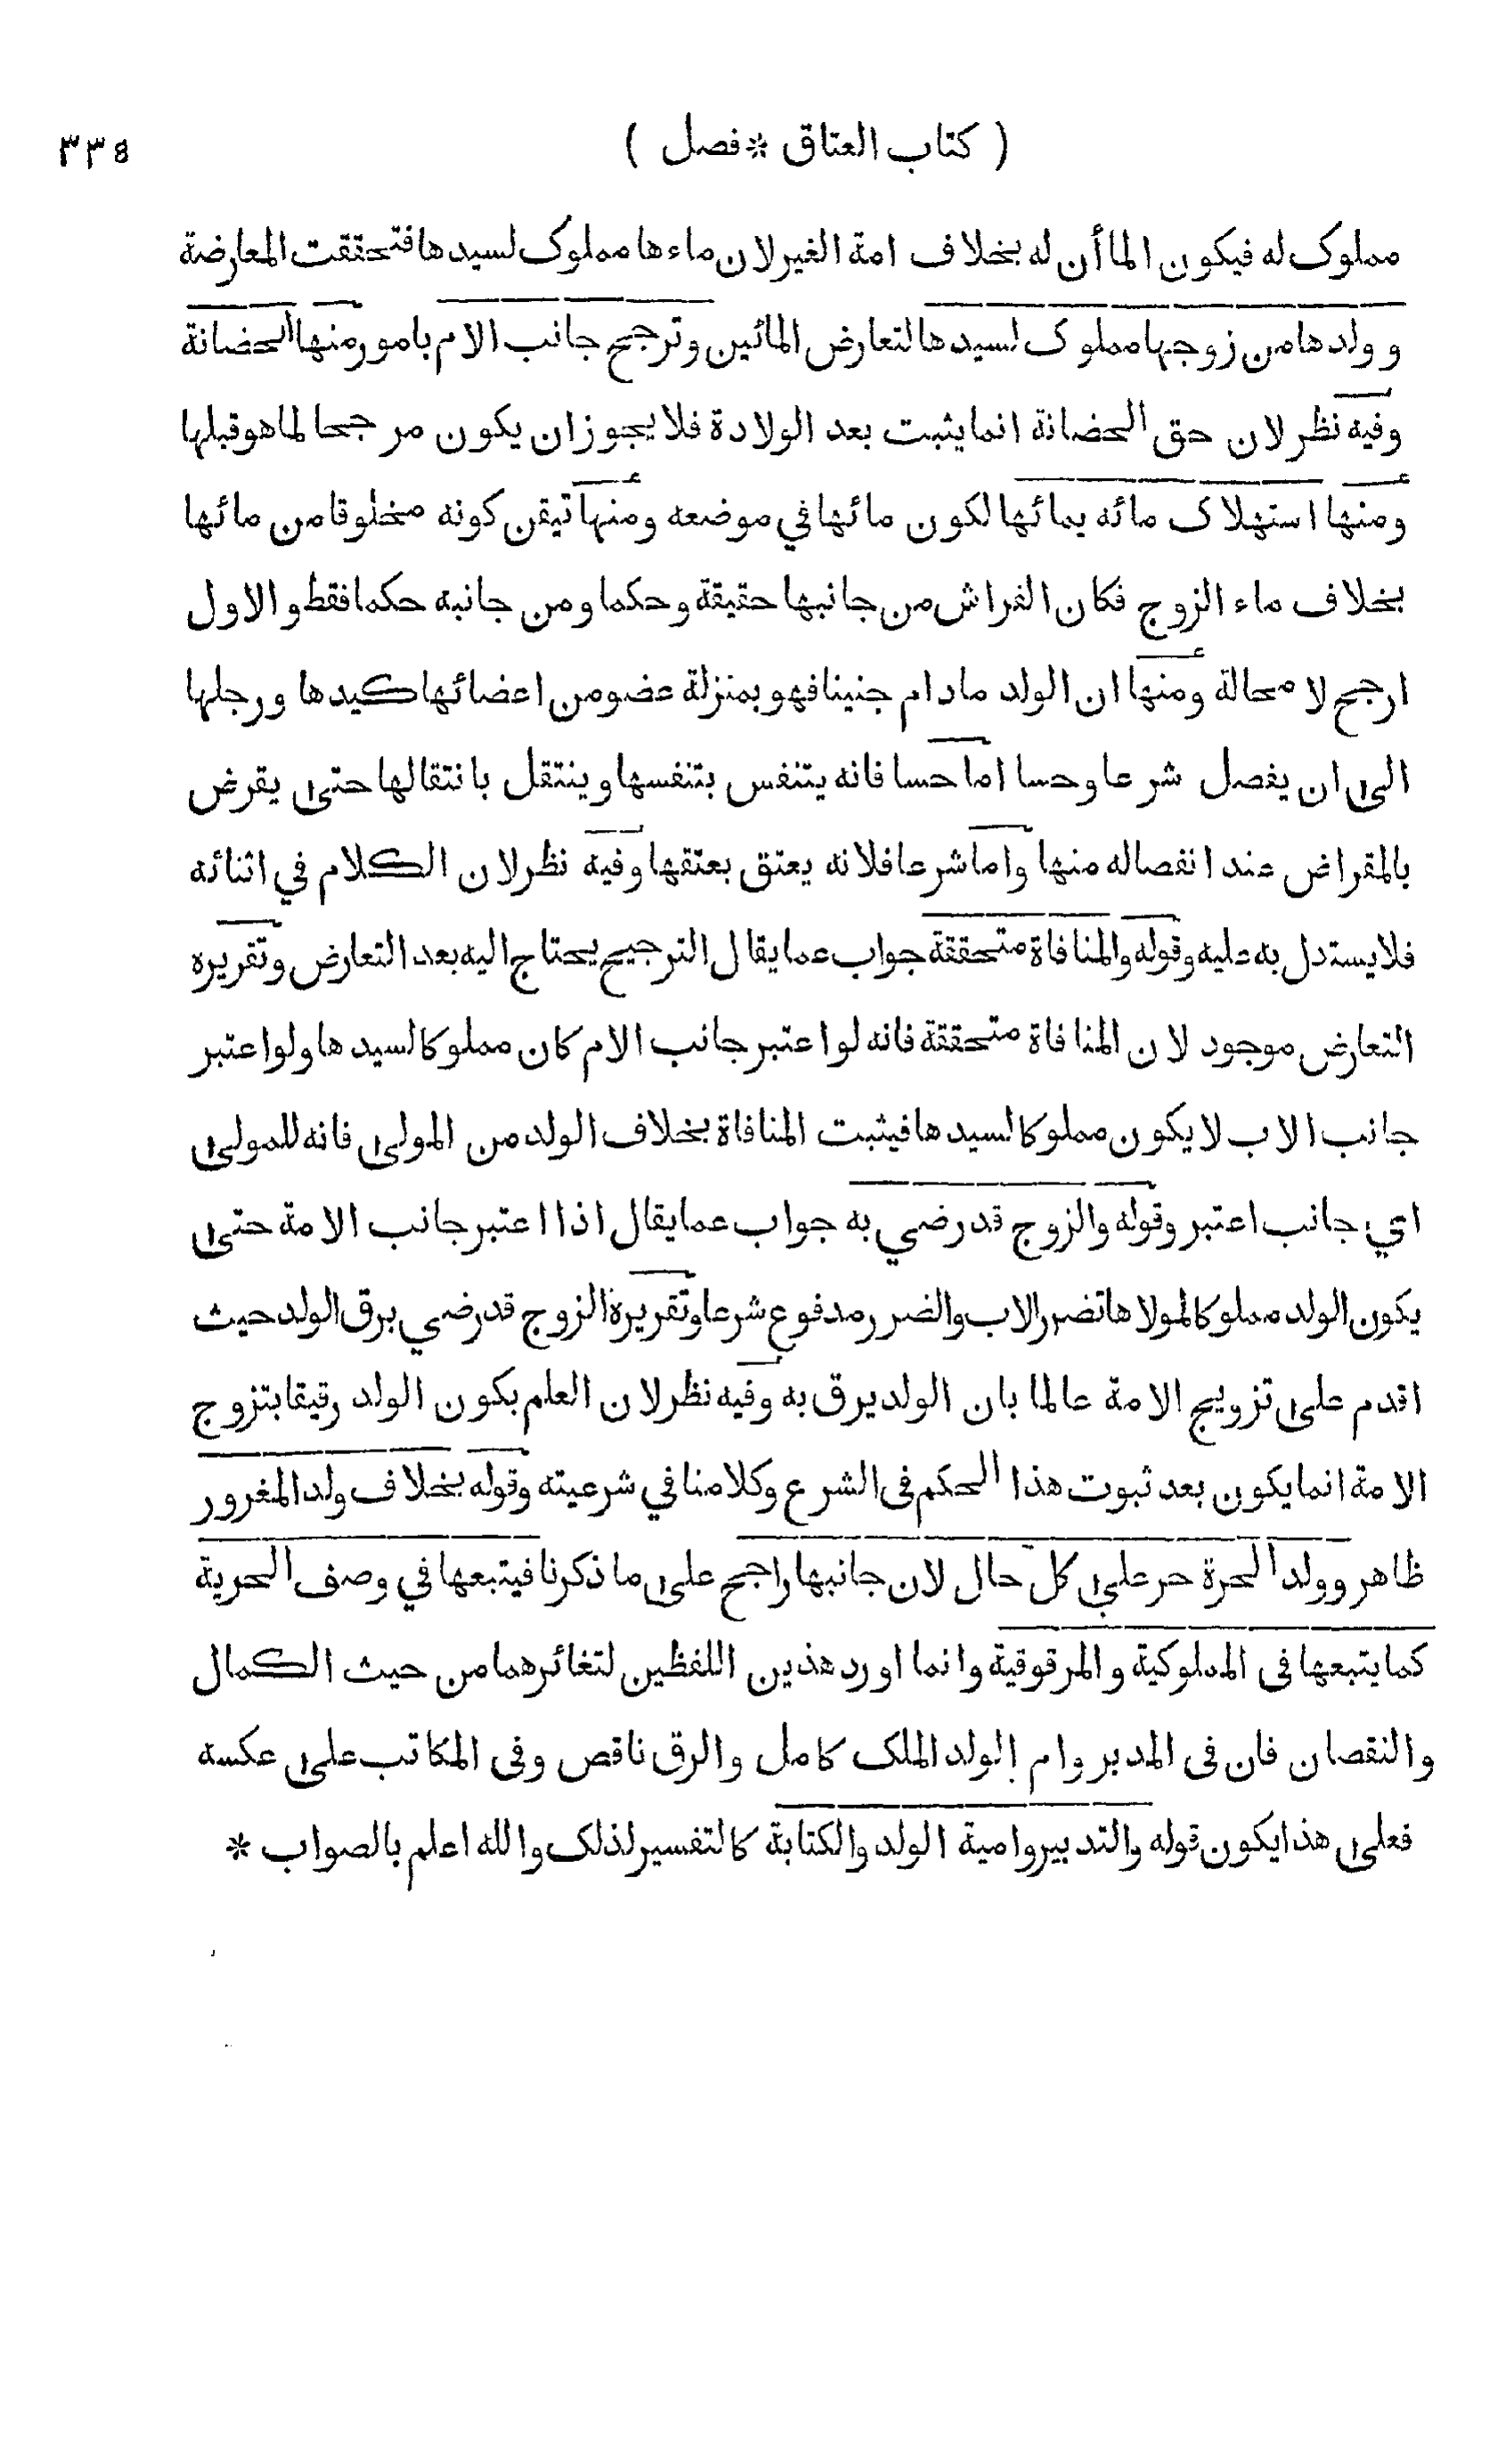 ( كتاب العتاق * فصل ) ٣٣٥
مملوك له فيكون الماأن له بخلاف امة الغير لان ماءها مملوك لسيدها فتحققت المعارضة
وولدها من زوجها مملوك لسيدها لتعارض المائين وترجيح جانب الام بامور منها الحضانة
وفيه نظر لان حق الحضانة انما يثبت بعد الولادة فلا يجوز ان يكون مرجحا لما هو قبلها
ومنها استهلاك مائه بمائها لكون مائها في موضعه ومنها تيقن كونه مخلوقا من مائها
بخلاف ماء الزوج فكان الفراش من جانبها حقيقة وحكما ومن جانبه حكما فقط والاول
ارجح لا محالة ومنها ان الولد مادام جنينا فهو بمنزلة عضو من اعضائها كيدها ورجلها
الى ان يفصل شرعا وحسا اما حسا فانه يتنفس بتنفسها وينتقل بانتقالها حتى يقرض
بالمقراض عند انفصاله منها واما شرعا فلانه يعتق بعتقها وفيه نظر لان الكلام في اثنائه
فلا يستدل به عليه وقوله والمنافاة متحققة جواب عما يقال الترجيح يحتاج اليه بعد التعارض وتقريره
التعارض موجود لان المنافاة متحققة فانه لو اعتبر جانب الام كان مملوكا لسيدها ولو اعتبر
جانب الاب لا يكون مملوكا لسيدها فيثبت المنافاة بخلاف الولد من المولى فانه للمولى
اي جانب اعتبر وقوله والزوج قد رضي به جواب عما يقال اذا اعتبر جانب الامة حتى
يكون الولد مملوكا لمولاها تضرر الاب والضرر مدفوع شرعا وتقريرة الزوج قد رضي برق الولد حيث
اقدم على تزويج الامة عالما بان الولد يرق به وفيه نظر لان العلم بكون الولد رقيقا بتزوج
الامة انما يكون بعد ثبوت هذا الحكم فى الشرع وكلامنا في شرعيته وقوله بخلاف ولد المغرور
ظاهر وولد الحرة حر على كل حال لان جانبها راجح على ما ذكرنا فيتبعها في وصف الحرية
كما يتبعها فى المملوكية والمرقوقية وانما اورد هذين اللفظين لتغائرهما من حيث الكمال
والنقصان فان فى المدبر وام الولد الملك كامل والرق ناقص وفى المكاتب على عكسه
فعلى هذا يكون قوله والتدبير وامية الولد والكتابة كالتفسير لذلك والله اعلم بالصواب *